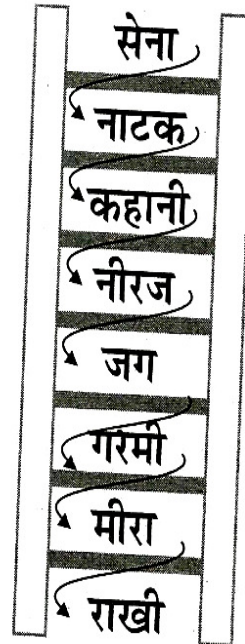 सेना
नाटक
कहानी
नीरज
जग
गरमी
मीरा
राखी